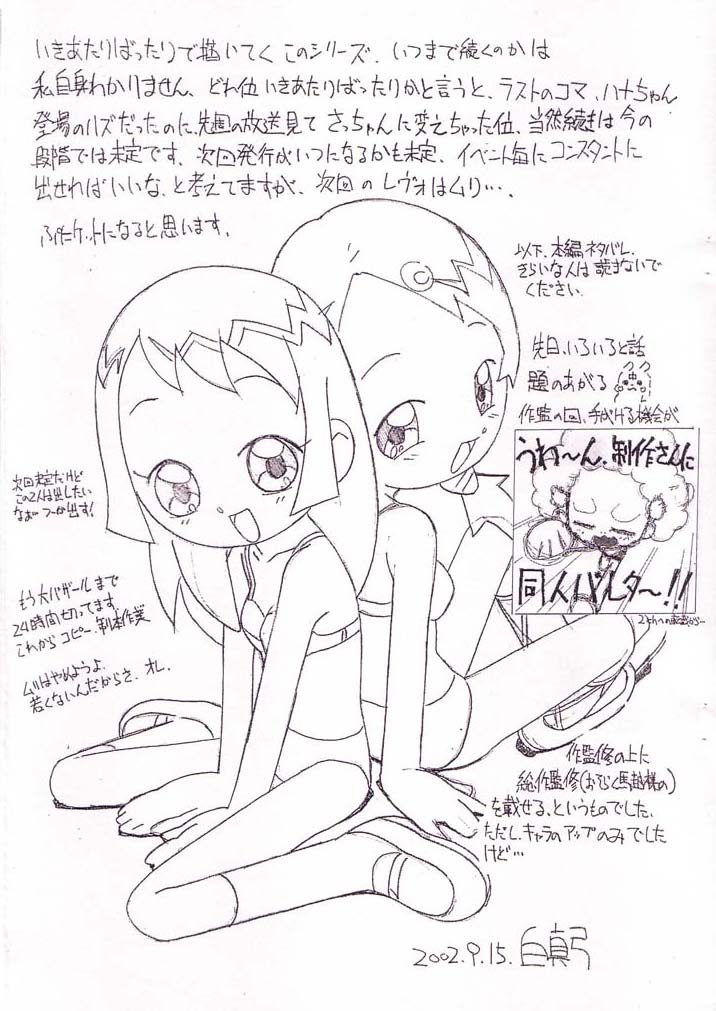 いきあたりばったりで描いてく このシリーズ、いつまで続くのかは
私自身わかりません、どれ位いきあたりばったりかと言うと、ラストのコマ、ハナちゃん
登場のハズだったのに、先週の放送見て さっちゃんに変えちゃった位、当然続きは今の
段階では未定です、次回発行がいつになるかも未定、イベント毎にコンスタントに
出せればいいな、と考えてますが、次回のレヴォはムリ…、
ぷにケットになると思います、
以下、本編ネタバレ、
きらいな人は読まないで
ください、
先日、いろいろと話
題のあがる
作監の回、手がける機会が
うわ〜ん、制作さんに
同人バレタ〜!!
2chへの転載から…
次回未定だけど
この2人は出したい
なぁ つーか出す!
もう大バザールまで
24時間切ってます、
これから コピー、製本作業
ムリはやめようよ、
若くないんだからさ、オレ、
作監修の上に
総作監修(おそらく馬越様の)
を載せる、というものでした、
ただし、キャラのアップのみでした
けど…
2002.9.15. 白真弓